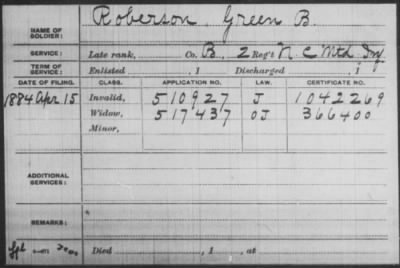 NAME OF SOLDIER: Roberson, Green B.
SERVICE: Late rank, Co. B, 2 Reg't N C Mtd Inf
TERM OF SERVICE: Enlisted , 1 Discharged , 1
DATE OF FILING. CLASS. APPLICATION NO. LAW. CERTIFICATE NO.
1884 Apr 15 Invalid, 510927 J 1042269
Widow, 517437 OJ 366400
Minor,
ADDITIONAL SERVICES:
REMARKS:
Died , 1 , at